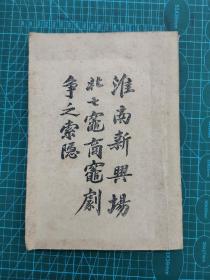 淮南新興場
北七竈商竈劇
争之索隐